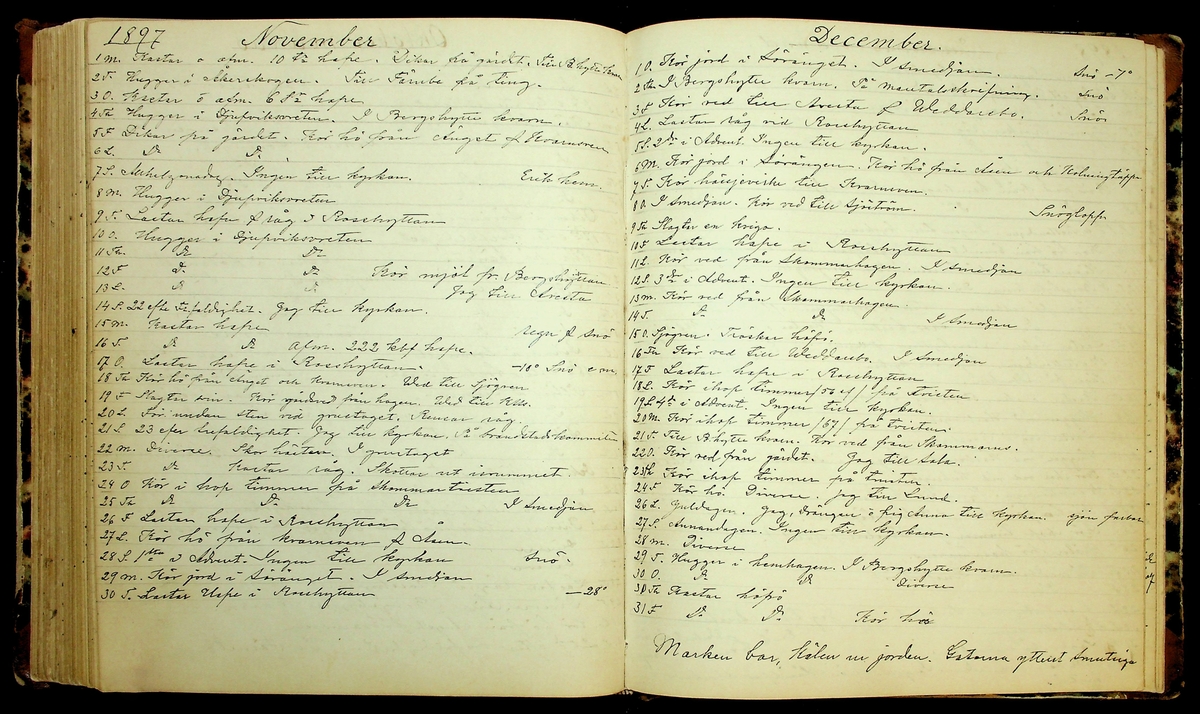 1897 November
1 M. Kastar o afm. 10 hafre. Dikar på gärdet.
2 T. Hugger i Åkerskogen. Till Färnbo på ting.
3 O. Kastar o afm. 6 hafre
4 Th Hugger i Djupviksvreten. I Bergshytte kvarn.
5 F Dikar på gärdet. Kör hö från Änget & Kvarnvren
6 L. Do Do
7 S. Ingen till kyrkan. Erik hem.
8 M. Hugger i Djupviksvreten
9 T. Lastar hafre & råg i Rosshyttan
10 O. Hugger i Djupviksvreten
11 Th. Do Do
12 F Do Do Kör mjöl fr. Bergshyttan
13 L. Do Do Jag till Avesta
14 S. 22 efter trefaldighet. Jag till kyrkan.
15 M. Kastar hafre regn & snö
16 T. Do Do afm. 222 kbf hafre.
17 O. Lastar hafre i Rosshyttan. –10° Snö e m
18 Th Kör hö från änget och kvarnvren. Ved till Sjögren
19 F Slagtar svin. Kör från hagen. Ved till
20 L. För undan sten vid grustaget. Rensar råg
21 S. 23 efter trefaldighet. Jag till kyrkan. På brandstodskommitten
22 M. Diverse. Skor hästen. I grustaget
23 T. Do Kastar råg. Skottar ut i
24 O Kör i hop timmer på Skommartrusten
25 Th Do Do Do I Smedjan
26 F Lastar hafre i Rosshyttan
27 L. Kör hö från kvarnvren & Åsen.
28 S. 1sta i Advent. Ingen till kyrkan Snö.
29 M. Kör jord i Söränget. I Smedjan
30 T. Lastar Hafre i Rosshyttan –28°
December.
1 O. Kör jord i Söränget. I Smedjan. Snö –7°
2 Th. I Bergshytte kvarn. På mantalskrifning. Snö
3 F Kör ved till Avesta & Weddarebo. Snö
4 L. Lastar råg vid Rosshyttan
5 S. 2dra i Advent. Ingen till kyrkan.
6 M. Kör jord i Sörängen. Kör hö från Åsen och
7 T. Kör till Kvarnvren.
8 O. I Smedjan. Kör ved till Sjöström. Snöglopp
9 Th Slagtar en kviga.
10 F Lastar hafre i Rosshyttan
11 L. Kör ved från Skommarhagen. I Smedjan
12 S. 3dje i Advent. Ingen till kyrkan.
13 M. Kör ved från Skommarhagen.
14 T. Do Do I Smedjan
15 O. Sjögren. Tröskar
16 Th Kör ved till Weddarebo. I Smedjan
17 F Lastar hafre i Rosshyttan
18 L. Kör ihop timmer /56 st/ på trusten
19 S. 4de i Advent. Ingen till kyrkan.
20 M. Kör ihop timmer /67/ på trusten
21 T. Till B.hytte kvarn. Kör ved från Skommaren.
22 O. Kör ved från gärdet. Jag till Sala.
23 Th Kör ihop timmer på trusten
24 F Kör hö. Diverse. Jag till Lund.
26 L. Juldagen. Jag, drängen o pig Anna till kyrkan.
27 S. Annandagen. Ingen till kyrkan.
28 M. Diverse
29 T. Hugger i hemhagen. I Bergshytte kvarn.
30 O. Do Do Diverse
30 Th Kastar
31 F Do Do Kör hö
Marken bar, kälen ur jorden. Gatorna ytterst smutsiga